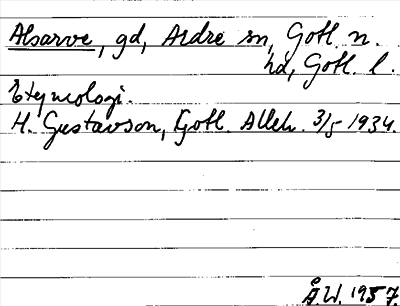 Alsarve, gd, Ardre sn, Gotl. n.
hd, Gotl. l.
Etymologi.
H. Gustavson, Gotl. Alleh. 3/5 1934.
Å.W. 1957.